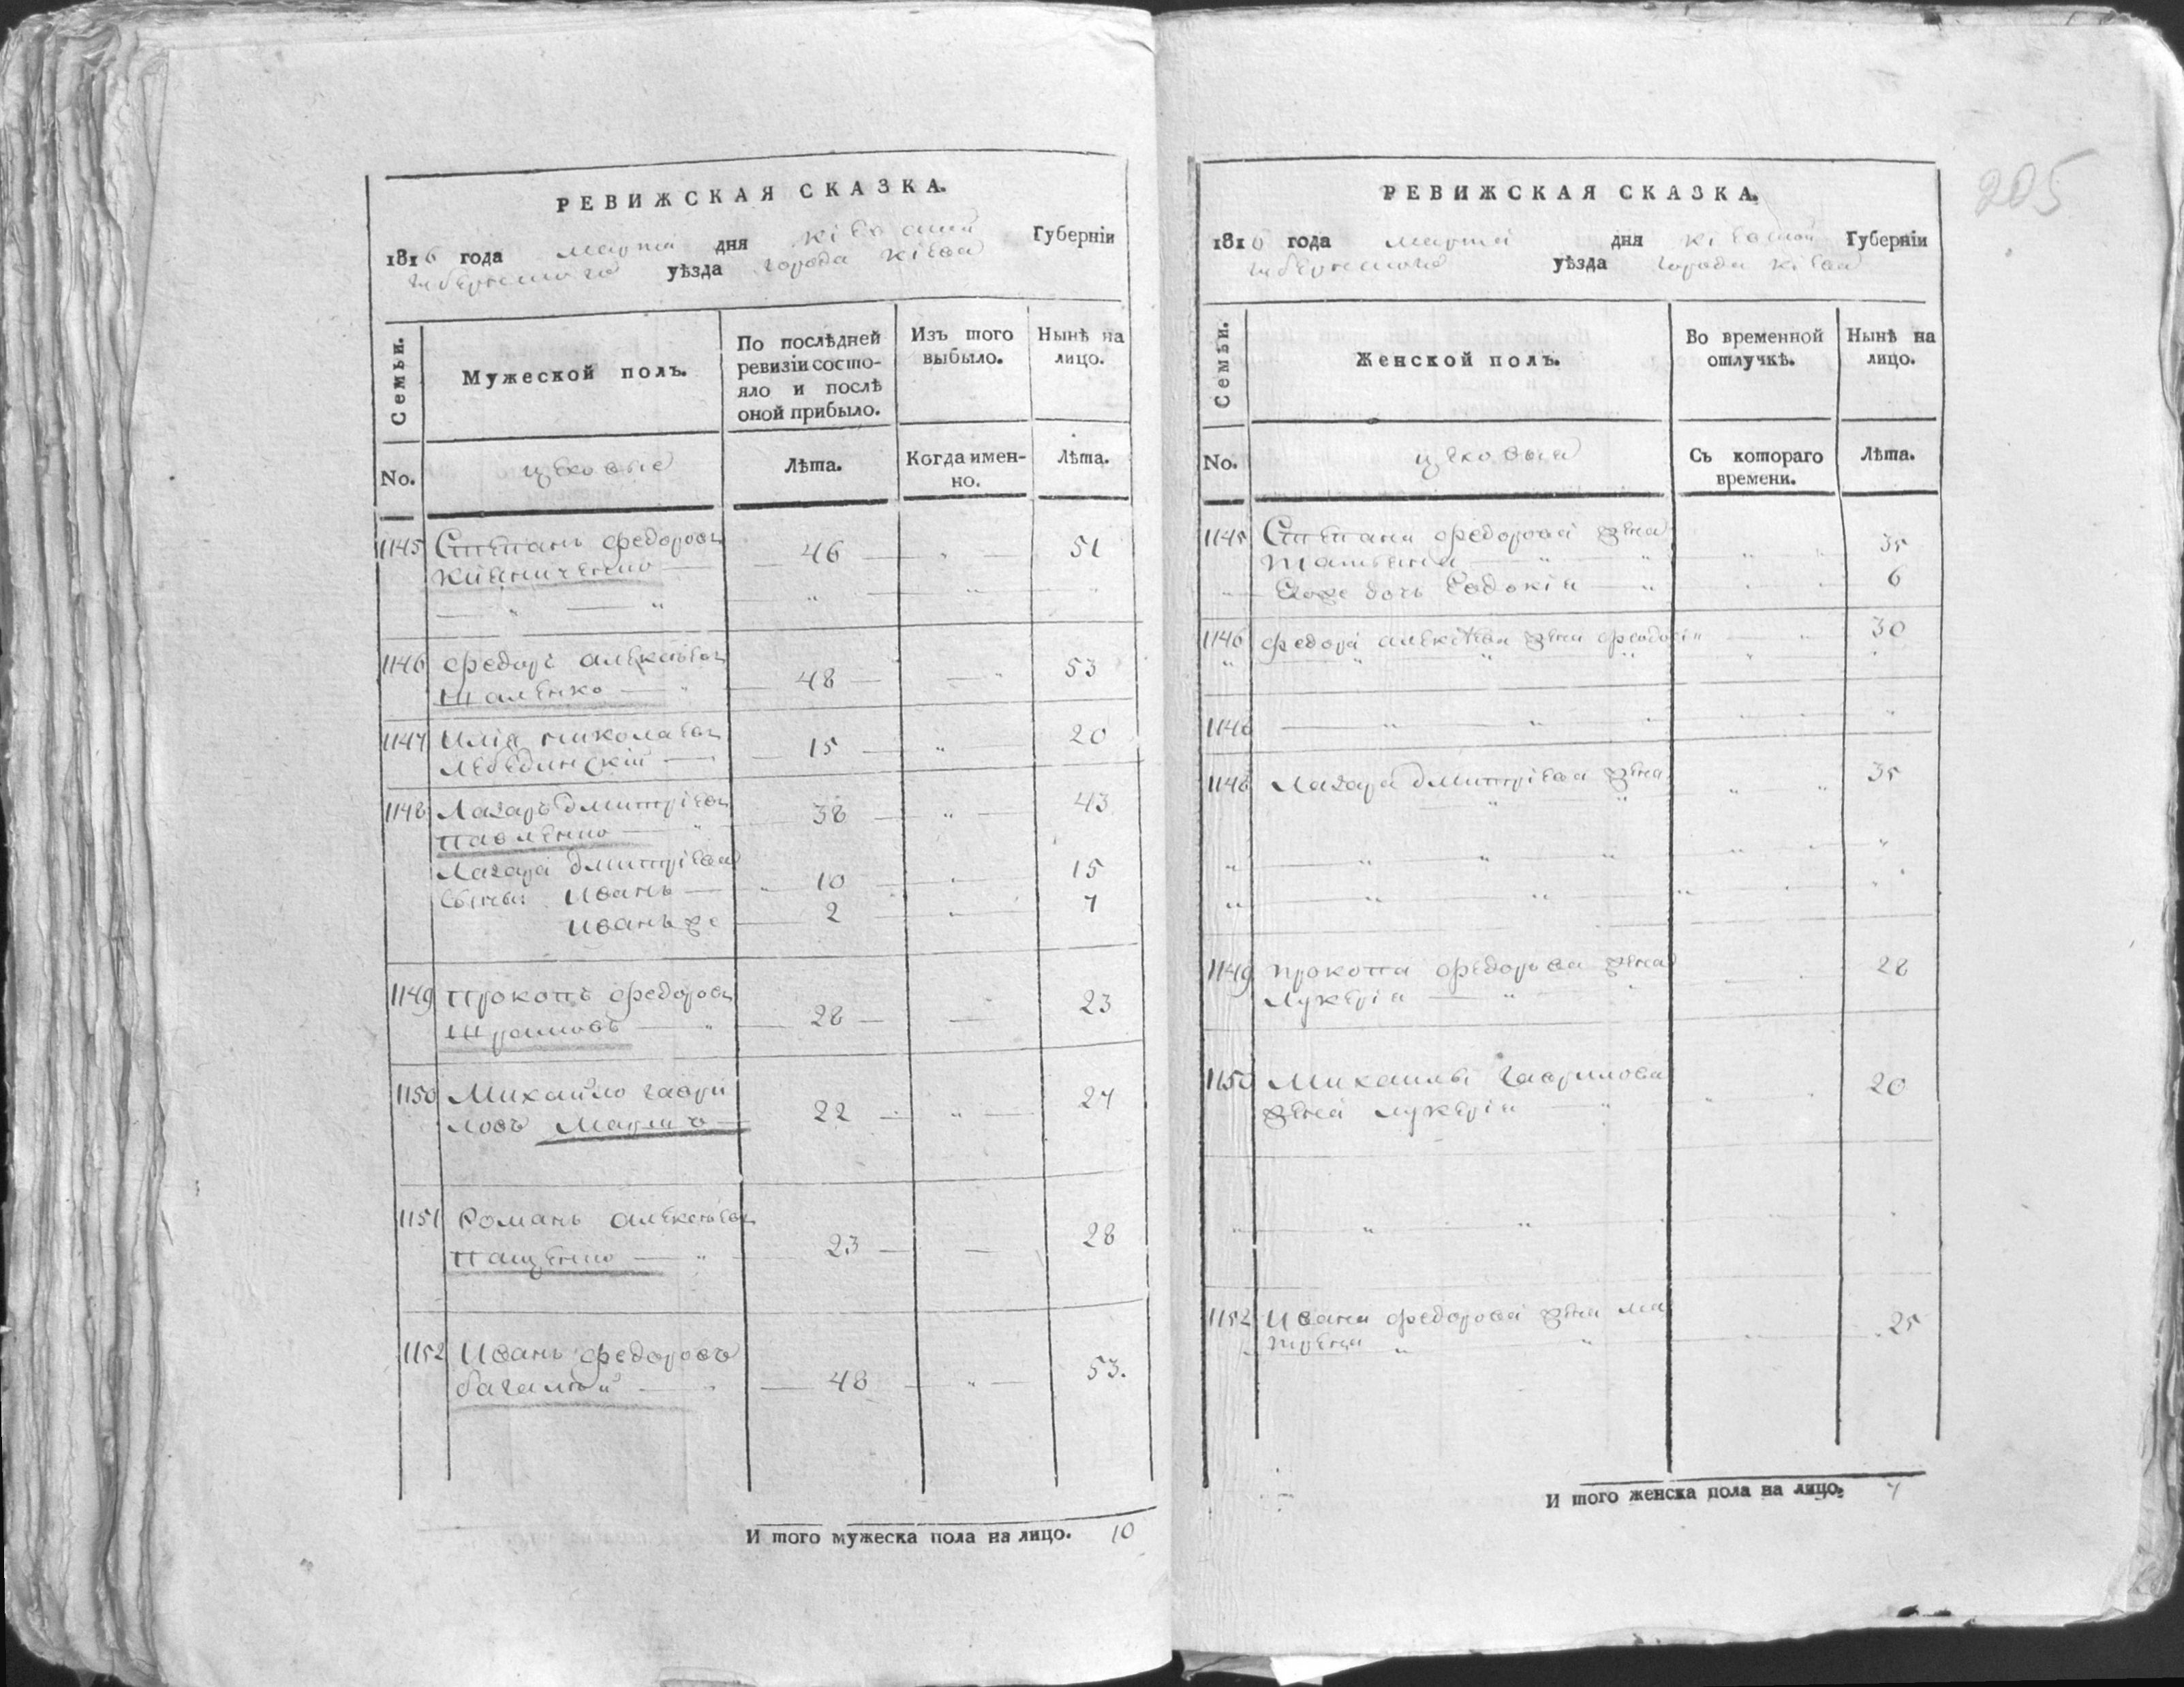 РЕВИЖСКАЯ СКАЗКА.
1816 года марта дня кіевской Губерніи
уѣзда города кіева
Семьи. Мужеской полъ. По послѣдней ревизіи состояло и послѣ оной прибыло. Изъ того выбыло. Нынѣ на лицо.
No. цеховые Лѣта. Когда именно. Лѣта.
1145 Степанъ федоровъ
46 51
1146 федоръ алексѣевъ
Шаленко 48 53
1147 Илія николаевъ
Лебединскій 15 20
1148 Лазарь дмитріевъ
Павленко 38 43
Лазаря дмитріева
сыны: Иванъ 10 15
Иванъ же 2 7
1149 Прокопъ федоровъ
28 23
1150 Михайло гаври
ловъ 22 27
1151 Романъ алексѣевъ
Пащенко 23 28
1152 Иванъ федоровъ
багалѣй 48 53.
И того мужеска пола на лицо. 10
205
РЕВИЖСКАЯ СКАЗКА.
1816 года марта дня кіевской Губерніи
уѣзда города кіева
Семьи. Женской полъ. Во временной отлучкѣ. Нынѣ на лицо.
No. цеховыя Съ котораго времени. Лѣта.
1145 Степана федорова жена
Татьяна 35
Егоже дочь Евдокія 6
1146 федора алексѣева жена феодосія 30
1148 Лазаря дмитріева жена 35
1149 прокопа федорова жена
Лукерія 28
1150 Михайлы гаврилова
жена лукерія 20
1152 Ивана федорова жена ма
трена 25
И того женска пола на лицо. 7